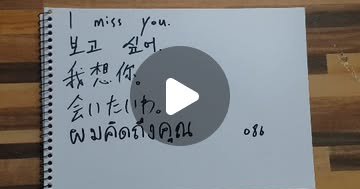 I miss you.
보고 싶어.
我想你。
会いたいわ。
ผมคิดถึงคุณ
086